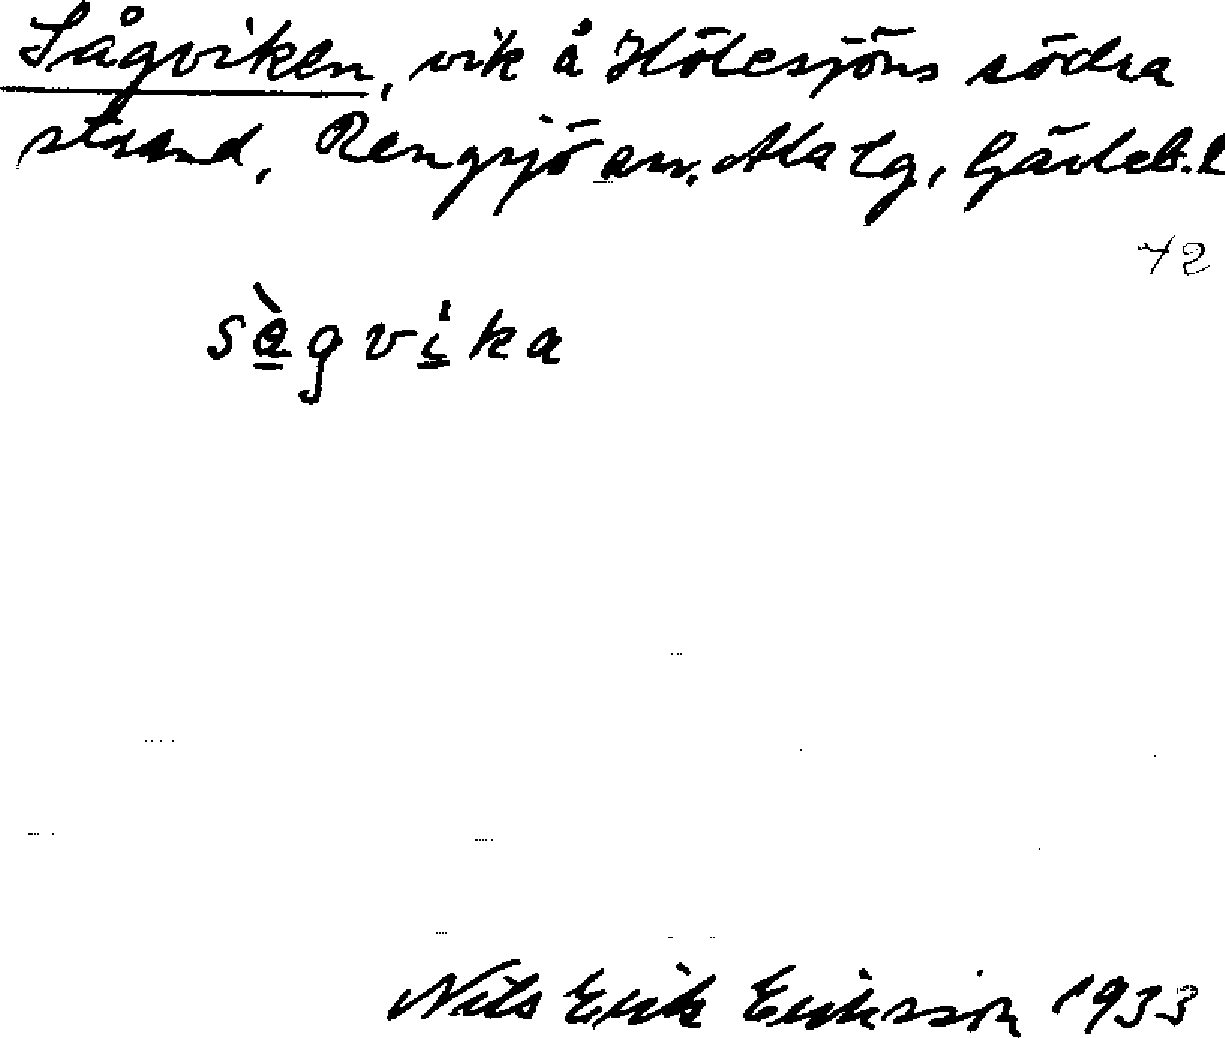 Sågviken, vik å Hölesjöns södra
strand, Rengsjö sn. Ala tg, Gävleb. l
42
sàgvika
Nils Erik Eriksson 1933